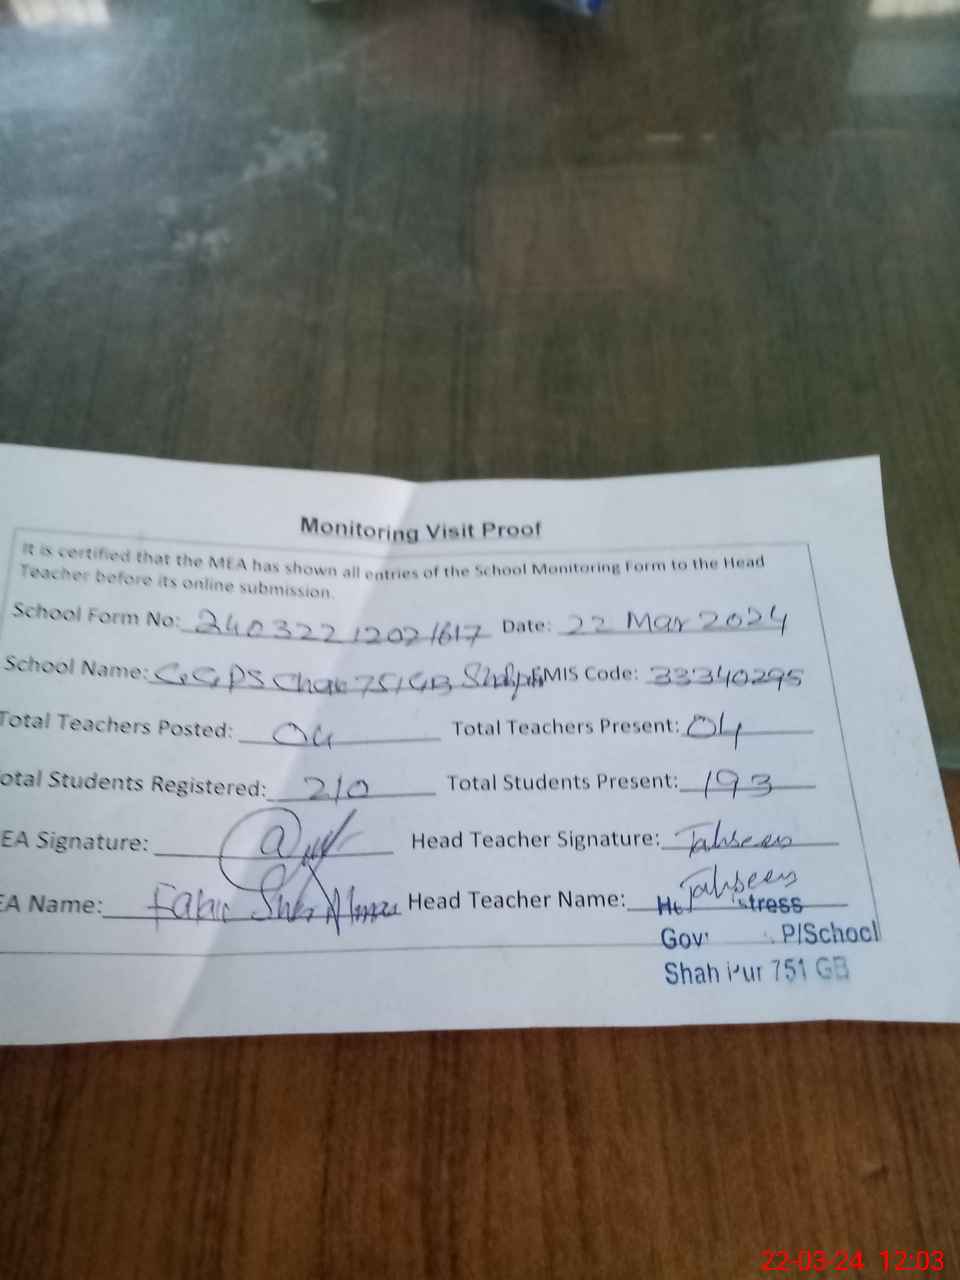 Monitoring Visit Proof
It is certified that the MEA has shown all entries of the School Monitoring Form to the Head
Teacher before its online submission.
School Form No: 240322 12021617 Date: 22 Mar 2024
School Name: GGPS Chak 751GB MIS Code: 33340295
Total Teachers Posted: 04 Total Teachers Present: 04
otal Students Registered: 210 Total Students Present: 193
EA Signature: Head Teacher Signature: Tahseen
EA Name: Head Teacher Name: Tahseen
stress
Gov P/School
Shah Pur 751 GB
22-03-24 12:03